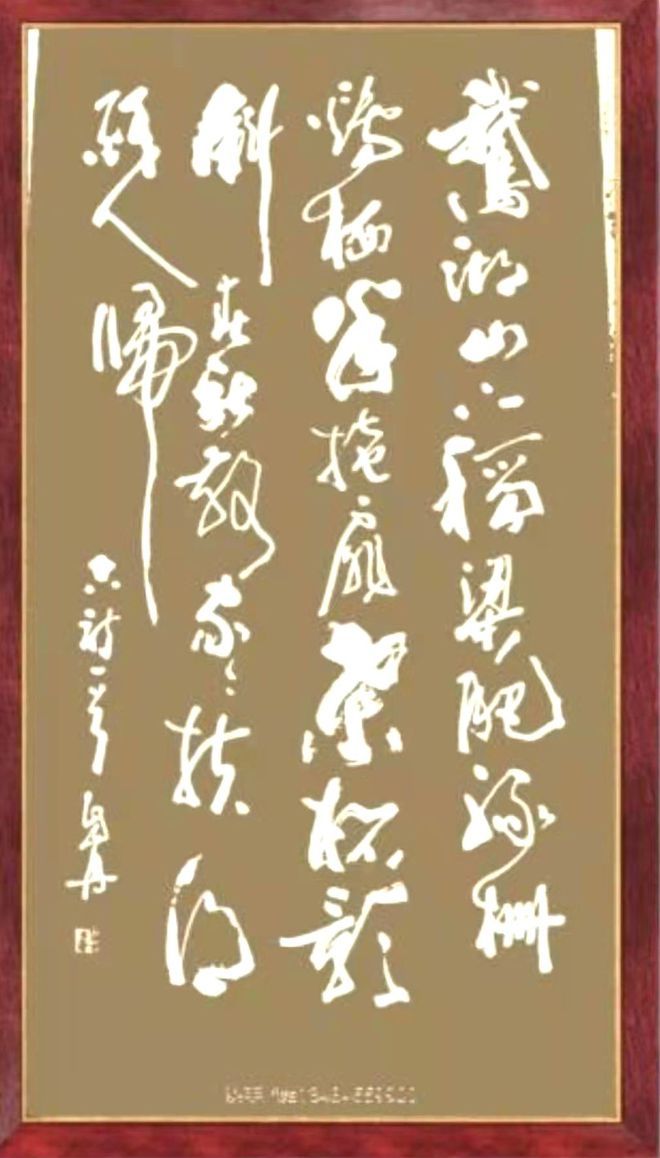 鵝湖山下稻粱肥豚柵
鷄栖半掩扉桑柘影
斜春社散家〻扶得
醉人歸
古詩一首